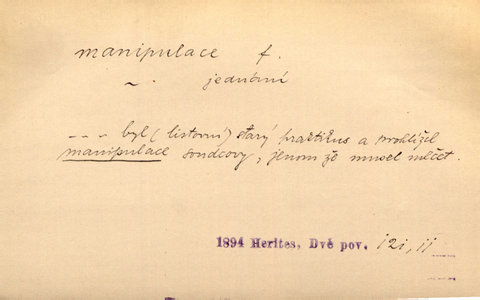 manipulace f.
~. jednání
--- byl (listovní) starý praktikus a prohlížel
manipulace soudcovy, jenom že musel mlčet.
1894 Herites, Dvě pov. 121, 11